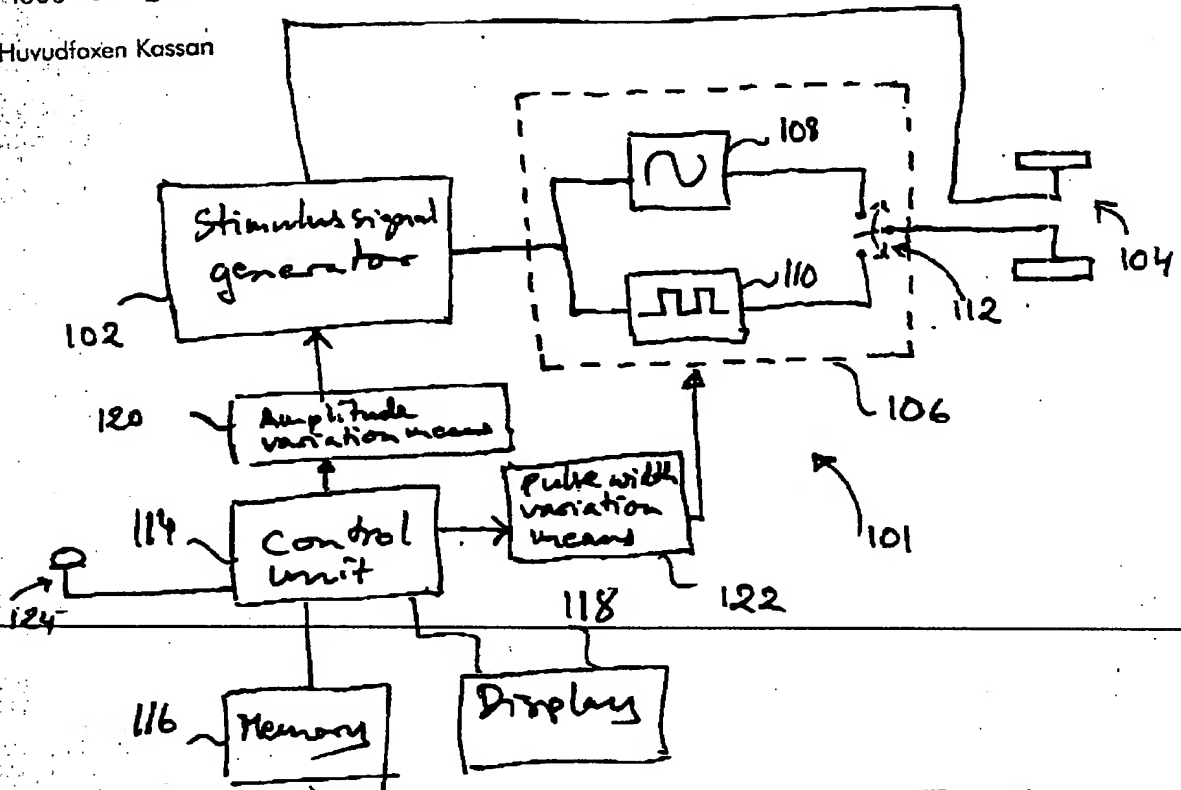 Huvudfaxen Kassan
108
Stimulus signal
generator
110
104
112
102
106
120
Amplitude
variation means
pulse width
variation
means
101
114
Control
unit
122
124
118
116
Memory
Displays